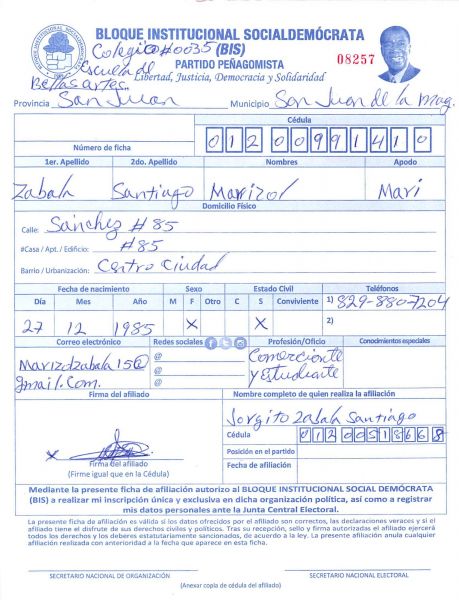 BLOQUE INSTITUCIONAL SOCIALDEMÓCRATA
(BIS)
PARTIDO PEÑAGOMISTA
Libertad, Justicia, Democracia y Solidaridad
08257
BLOQUE INSTITUCIONAL SOCIALDEMÓCRATA
Colegio #0035
Escuela de
Bellas artes.
Provincia San Juan Municipio San Juan de la Mag.
Cédula
Número de ficha 01200991410
1er. Apellido 2do. Apellido Nombres Apodo
Zabala Santiago Marizol Mari
Domicilio Físico
Calle: Sánchez #85
#Casa / Apt. / Edificio: #85
Barrio / Urbanización: Centro Ciudad
Fecha de nacimiento Sexo Estado Civil Teléfonos
Día Mes Año M F Otro C S Conviviente 1) 829-880-7204
27 12 1985 X X 2)
Correo electrónico Redes sociales Profesión/Oficio Conocimientos especiales
Marizolzabala15@
gmail.com.
@
@
@
Comerciante
y Estudiante
Firma del afiliado Nombre completo de quien realiza la afiliación
Jorgito Zabala Santiago
Cédula 01200518668
Posición en el partido
X
Firma del afiliado
(Firme igual que en la Cédula)
Fecha de afiliación
Mediante la presente ficha de afiliación autorizo al BLOQUE INSTITUCIONAL SOCIAL DEMÓCRATA
(BIS) a realizar mi inscripción única y exclusiva en dicha organización política, así como a registrar
mis datos personales ante la Junta Central Electoral.
La presente ficha de afiliación es válida si los datos ofrecidos por el afiliado son correctos, las declaraciones veraces y si el
afiliado tiene el disfrute de sus derechos civiles y políticos. Tras su recepción, sello y firma autorizados el afiliado ejercerá
todos los derechos y los deberes estatutariamente sancionados, de acuerdo a la ley. La presente afiliación anula cualquier
afiliación realizada con anterioridad a la fecha que aparece en esta ficha.
SECRETARIO NACIONAL DE ORGANIZACIÓN SECRETARIO NACIONAL ELECTORAL
(Anexar copia de cédula del afiliado)